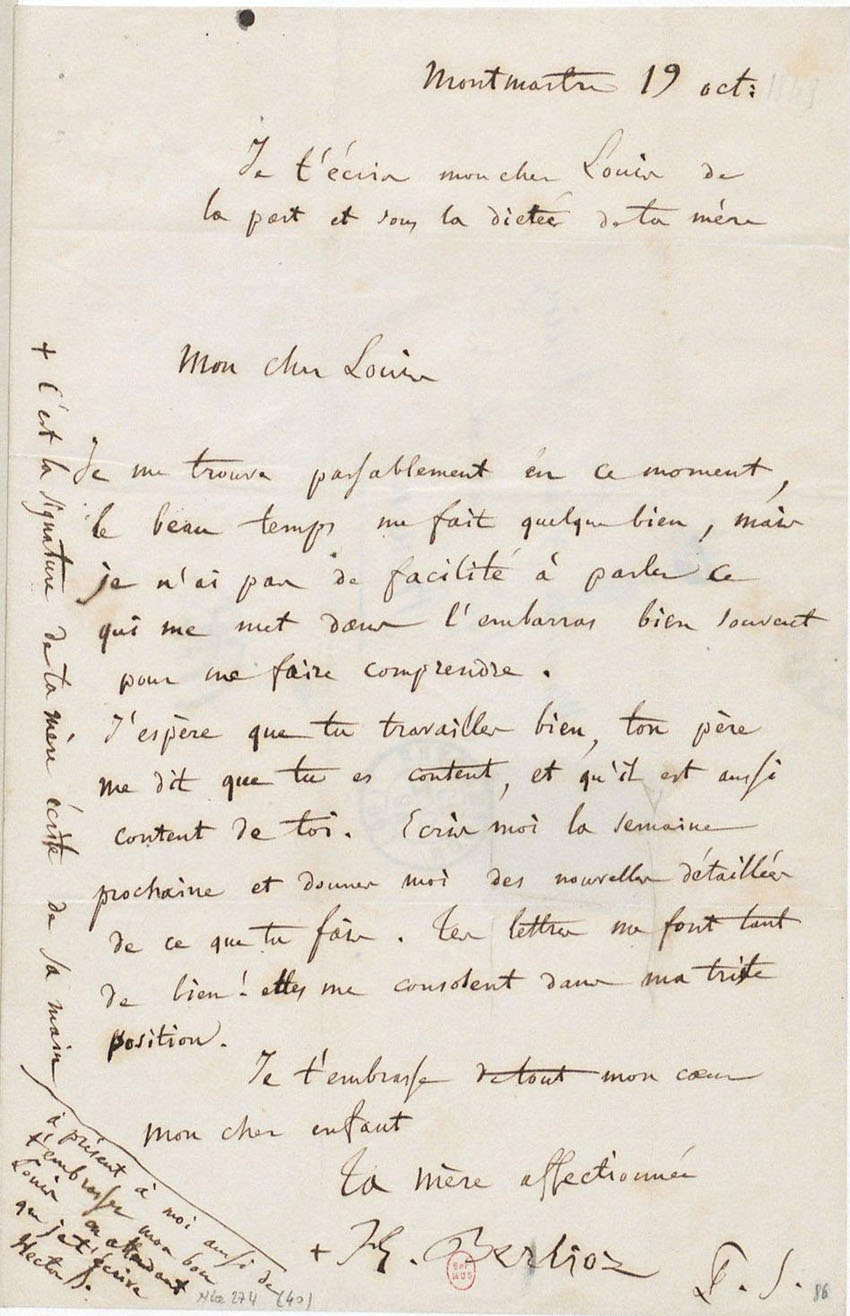 Montmartre 19 oct:
Je t'écris mon cher Louis de
la part et sous la dictée de ta mère
Mon cher Louis
Je me trouve passablement en ce moment,
le beau temps me fait quelque bien, mais
je n'ai pas de facilité à parler ce
qui me met dans l'embarras bien souvent
pour me faire comprendre.
J'espère que tu travailles bien, ton père
me dit que tu es content, et qu'il est aussi
content de toi. Ecris moi la semaine
prochaine et donnes moi des nouvelles détaillées
de ce que tu fais. Tes lettres me font tant
de bien! elles me consolent dans ma triste
position.
Je t'embrasse de tout mon cœur
mon cher enfant
Ta mère affectionnée
+ H. Berlioz
+ C'est la signature de ta mère écrite de sa main
à présent à moi aussi de
t'embrasser mon bon
Louis en attendant
que je t'écrive
Hector B.
(40)
86